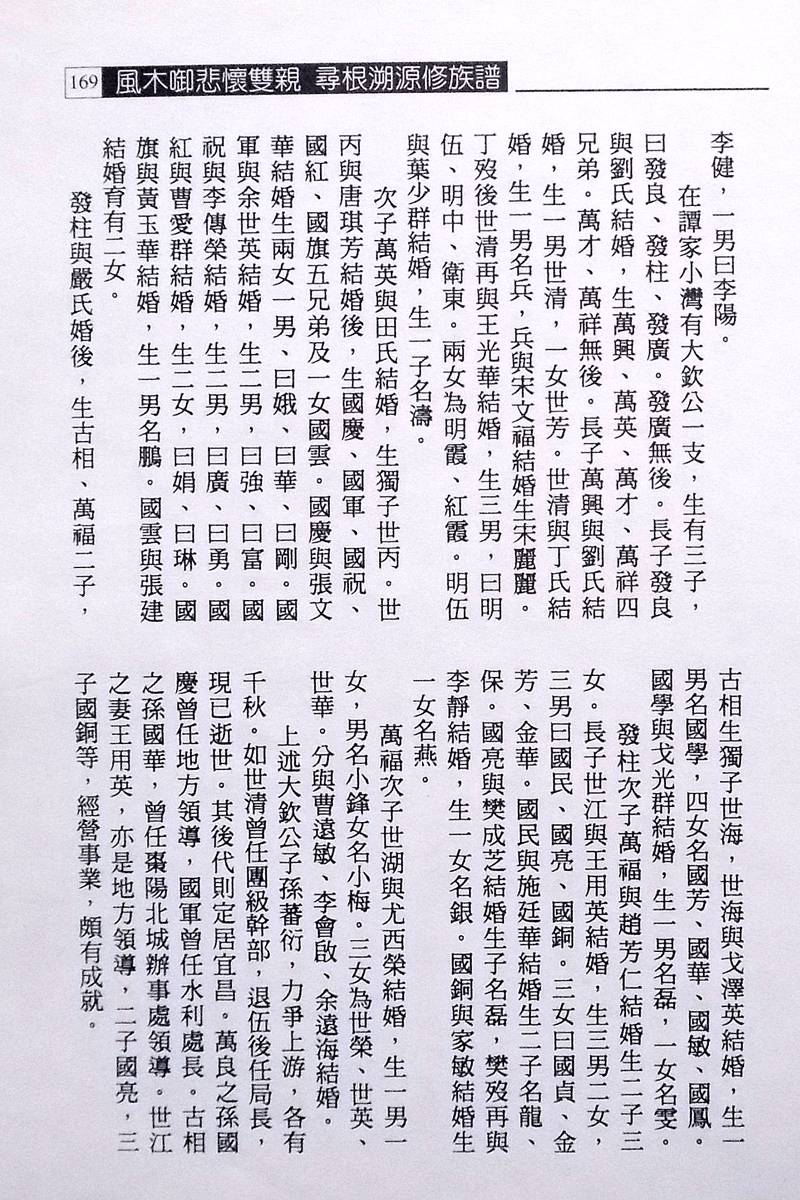 169 風木啣悲懷雙親 尋根溯源修族譜
李健，一男曰李陽。
在譚家小灣有大欽公一支，生有三子，
曰發良、發柱、發廣。發廣無後。長子發良
與劉氏結婚，生萬興、萬英、萬才、萬祥四
兄弟。萬才、萬祥無後。長子萬興與劉氏結
婚，生一男世清，一女世芳。世清與丁氏結
婚，生一男名兵，兵與宋文福結婚生宋麗麗。
丁歿後世清再與王光華結婚，生三男，曰明
伍、明中、衛東。兩女為明霞、紅霞。明伍
與葉少群結婚，生一子名濤。
次子萬英與田氏結婚，生獨子世丙。世
丙與唐琪芳結婚後，生國慶、國軍、國祝、
國紅、國旗五兄弟及一女國雲。國慶與張文
華結婚生兩女一男、曰娥、曰華、曰剛。國
軍與余世英結婚，生二男，曰強、曰富。國
祝與李傳榮結婚，生二男，曰廣、曰勇。國
紅與曹愛群結婚，生二女，曰娟、曰琳。國
旗與黃玉華結婚，生一男名鵬。國雲與張建
結婚育有二女。
發柱與嚴氏婚後，生古相、萬福二子，
古相生獨子世海，世海與戈澤英結婚，生一
男名國學，四女名國芳、國華、國敏、國鳳。
國學與戈光群結婚，生一男名磊，一女名雯。
發柱次子萬福與趙芳仁結婚生二子三
女。長子世江與王用英結婚，生三男二女，
三男曰國民、國亮、國銅。三女曰國貞、金
芳、金華。國民與施廷華結婚生二子名龍、
保。國亮與樊成芝結婚生子名磊，樊歿再與
李靜結婚，生一女名銀。國銅與家敏結婚生
一女名燕。
萬福次子世湖與尤西榮結婚，生一男一
女，男名小鋒女名小梅。三女為世榮、世英、
世華。分與曹遠敏、李會啟、余遠海結婚。
上述大欽公子孫蕃衍，力爭上游，各有
千秋。如世清曾任團級幹部，退伍後任局長，
現已逝世。其後代則定居宜昌。萬良之孫國
慶曾任地方領導，國軍曾任水利處長。古相
之孫國華，曾任棗陽北城辦事處領導。世江
之妻王用英，亦是地方領導，二子國亮，三
子國銅等，經營事業，頗有成就。